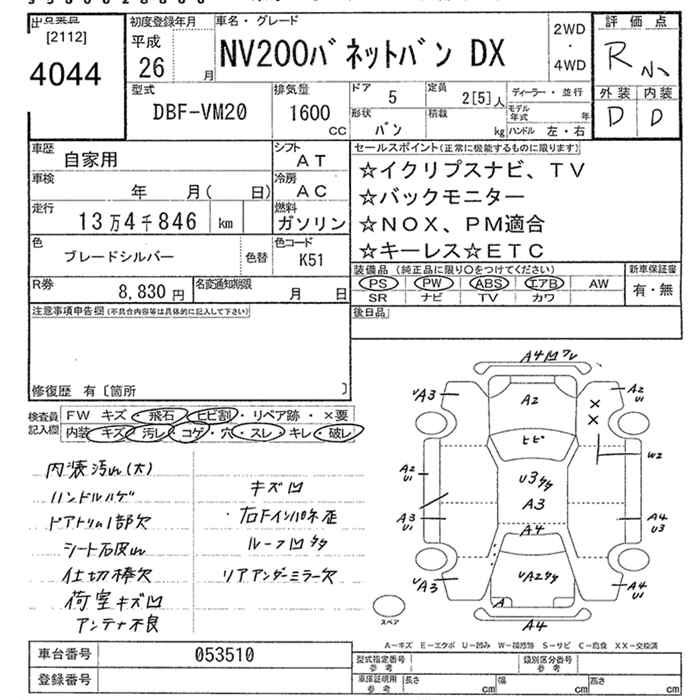 [2112]
4044
初度登録年月
平成
26 月
車名・グレード
NV200バネットバン DX
2WD
・
4WD
評価点
R 小
外装 内装
D D
型式
DBF-VM20
排気量
1600
CC
ドア 5
定員 2[5]人
ディーラー・並行
形状 バン
積載 kg
モデル年式 年
ハンドル 左・右
車歴 自家用
シフト AT
車検 年 月( 日)
冷房 AC
走行 13万4千846 km
燃料 ガソリン
色 ブレードシルバー
色替
色コード K51
R券 8,830円
名変通知期限 月 日
セールスポイント(正常に機能するものに限ります)
☆イクリプスナビ、TV
☆バックモニター
☆NOX、PM適合
☆キーレス☆ETC
装備品 (純正品に限り○をつけてください)
PS PW ABS エアB AW
SR ナビ TV カワ
新車保証書
有・無
後日品
注意事項申告欄(不具合内容等は具体的に記入して下さい)
修復歴 有〔箇所 〕
検査員記入欄
FW キズ・飛石・ヒビ割・リペア跡・×要
内装 キズ・汚レ・コゲ・穴・スレ・キレ・破レ
内装汚れ(大)
ハンドルハゲ
ドアトリム1部欠
シート石灰れ
仕切棒欠
荷室キズ凹
アンテナ不良
キズ凹
右Fインパネ歪
ルーフ凹タタ
リアアンダーミラー欠
A4凹ワレ
A3
A2
A2
U1
××
ヒビ
W2
A2
U1
U3タタ
A3
A3
U1
A4
A4
U3
A3
UA2タタ
A
A4
U1
A4
スペア
A-キズ E-エクボ U-凹み W-補修跡 S-サビ C-腐食 XX-交換済
車台番号 053510
登録番号
型式指定番号
参考
類別区分番号
参考
車庫証明用
参考
長さ cm
幅 cm
高さ cm